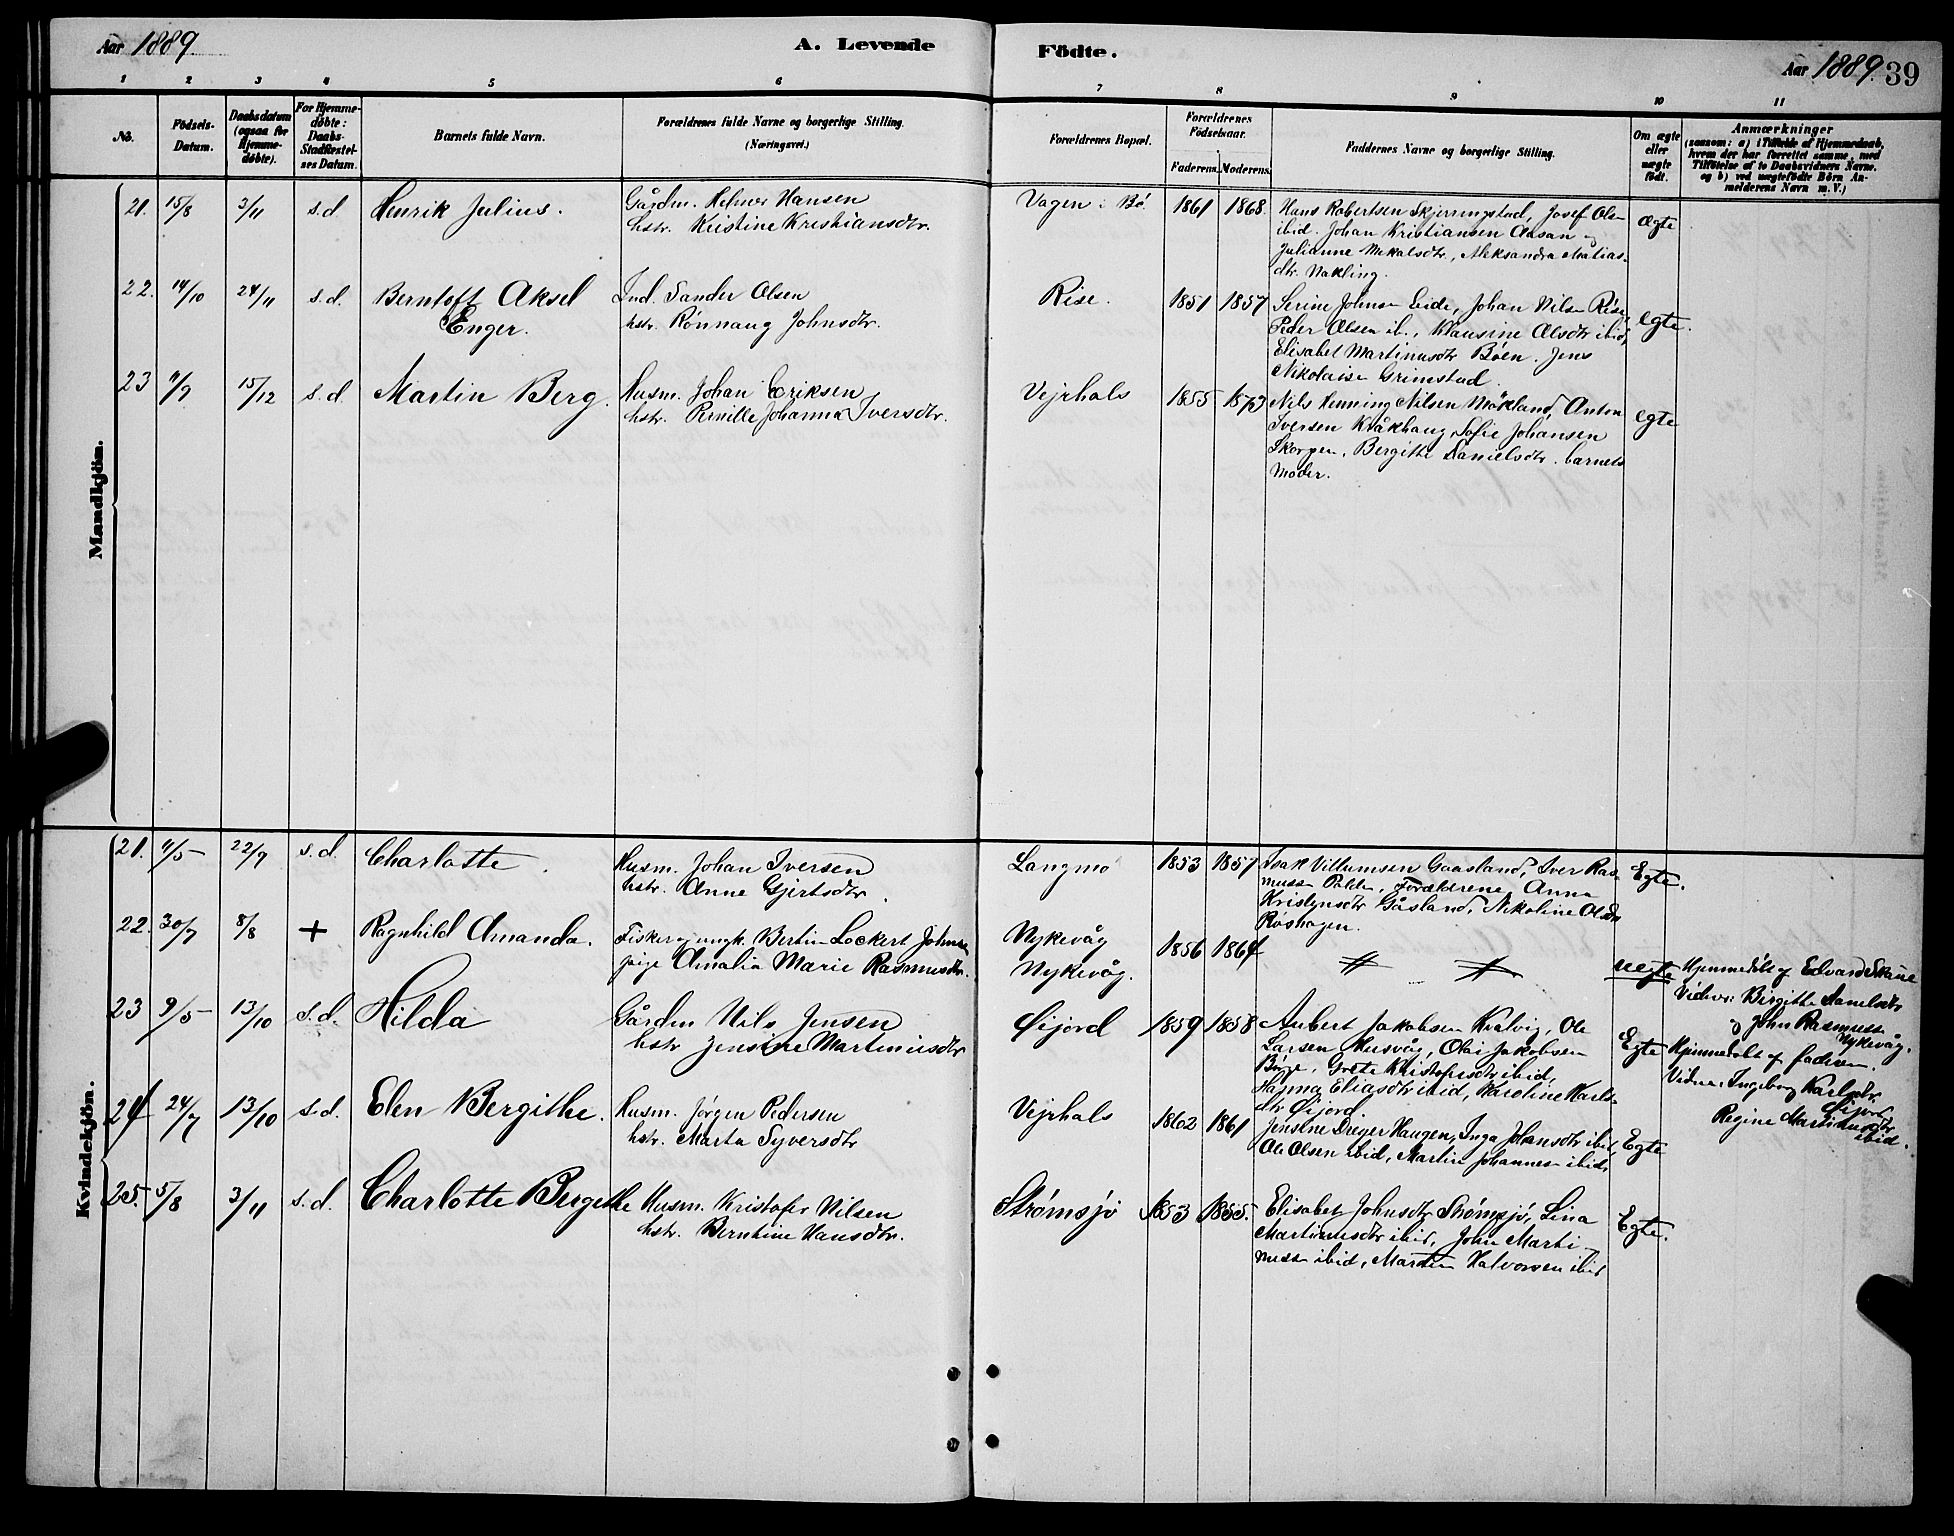 Aar 1889.
A. Levende
Födte.
Aar 1889. 39
1 2 3 4 5 6 7 8 9 10 11
No.
Födsels-
Datum.
Daabsdatum
(ogsaa for
Hjemme-
döbte).
For Hjemme-
döbte:
Daabs-
Stadfæstel-
ses Datum.
Barnets fulde Navn.
Forældrenes fulde Navne og borgerlige Stilling.
(Næringsvei.)
Forældrenes Bopæl.
Forældrenes
Födselsaar.
Faderens. Moderens.
Faddernes Navne og borgerlige Stilling.
Om ægte
eller
uægte
födt.
Anmærkninger
(saasom: a) i Tilfælde af Hjemmedaab,
hvem der har forrettet samme, med
Tilföielse af to Daabsvidners Navne.
og b) ved uægtefödte Börn An-
melderens Navn m. V.)
Mandkjön.
21. 15/8 3/11 s.d. Henrik Julius.
Gårdm. Helmer Hansen
hstr. Kristine Kristiansdtr.
Vagen i Bö. 1861 1868
Hans Robertsen Skjerringstad, Josef Olsen
ibid. Johan Kristiansen Aasan og
Julianne Mikalsdtr., Aleksandra Matias-
dtr. Vakling.
Ægte
22. 14/10 24/11 s.d. Berntoft Aksel
Enger.
Ind. Sander Olsen
hstr. Rönnaug Johnsdtr.
Rise. 1851 1857
Serine Johnsen Eide, Johan Nilsen Rise,
Peder Olsen ib., Klausine Olsdtr ibid,
Elisabet Martinusdtr Böen. Jens
Nikolaisen Grimstad.
egte.
23 11/9 15/12 s.d. Martin Berg.
Husm. Johan Eriksen
hstr. Pernille Johanna Iversdtr.
Vejrhals 1855 1873
Nils Henning Nilsen Mökland, Anton
Iversen Kråkhaug, Sofie Johansen
Skorpen, Bergithe Danielsdtr. barnets
Moder.
egte
Kvindekjön.
21. 11/5 22/9 s.d. Charlotte.
Husm. Johan Iversen
hstr. Anne Gjertsdtr.
Langmo 1853 1857
Isak Villumsen Gaasland, Iver Ras-
mussen Polden, Forældrene, Anna
Kristensdtr Gåsland, Nikoline Olsdtr
Röshagen.
Egte.
22. 30/7 8/8 + Ragnhild Amanda.
Fisker og ungk. Bertin Lockert Johnsen
pige Amalia Marie Rasmusdtr.
Nykevåg
Nykevåg. 1856 1864
uegte
Hjemmedöbt af Edvard Skaue
Vidner: Birgithe Danielsdtr
og John Rasmussen
Nykevåg.
23 9/5 13/10 s.d. Hilda
Gårdm Nils Jensen
hstr Jensine Martinusdtr
Øijord 1859 1858
Aubert Jakobsen Kralvig, Ole
Larsen Husvåg, Olai Jakobsen
Böge, Grete Kristofersdtr ibid,
Hanna Eliasdtr ibid, Karoline Karls-
dtr Øijord
Egte
Hjemmedöbt af faderen.
Vidner: Ingeborg Karlsdtr
Øijord
Regine Martinusdtr
ibid.
24 24/7 13/10 s.d. Elen Bergithe.
Husm. Jörgen Pedersen
hstr. Marta Syversdtr
Vejrhals 1862 1861
Jensine Dreyer Haugen, Inga Johansdtr ibid,
Ole Olsen ibid, Martin Johannesen ibid,
Egte
25. 5/8 3/11 s.d. Charlotte Bergithe
Husm. Kristofer Nilsen
hstr. Berntine Hansdtr.
Strømsjö 1853 1855.
Elisabet Johnsdtr Strömsjö, Lina
Martinusdtr ibid, John Marti-
nussen ibid, Martin Halvorsen ibid
Egte.